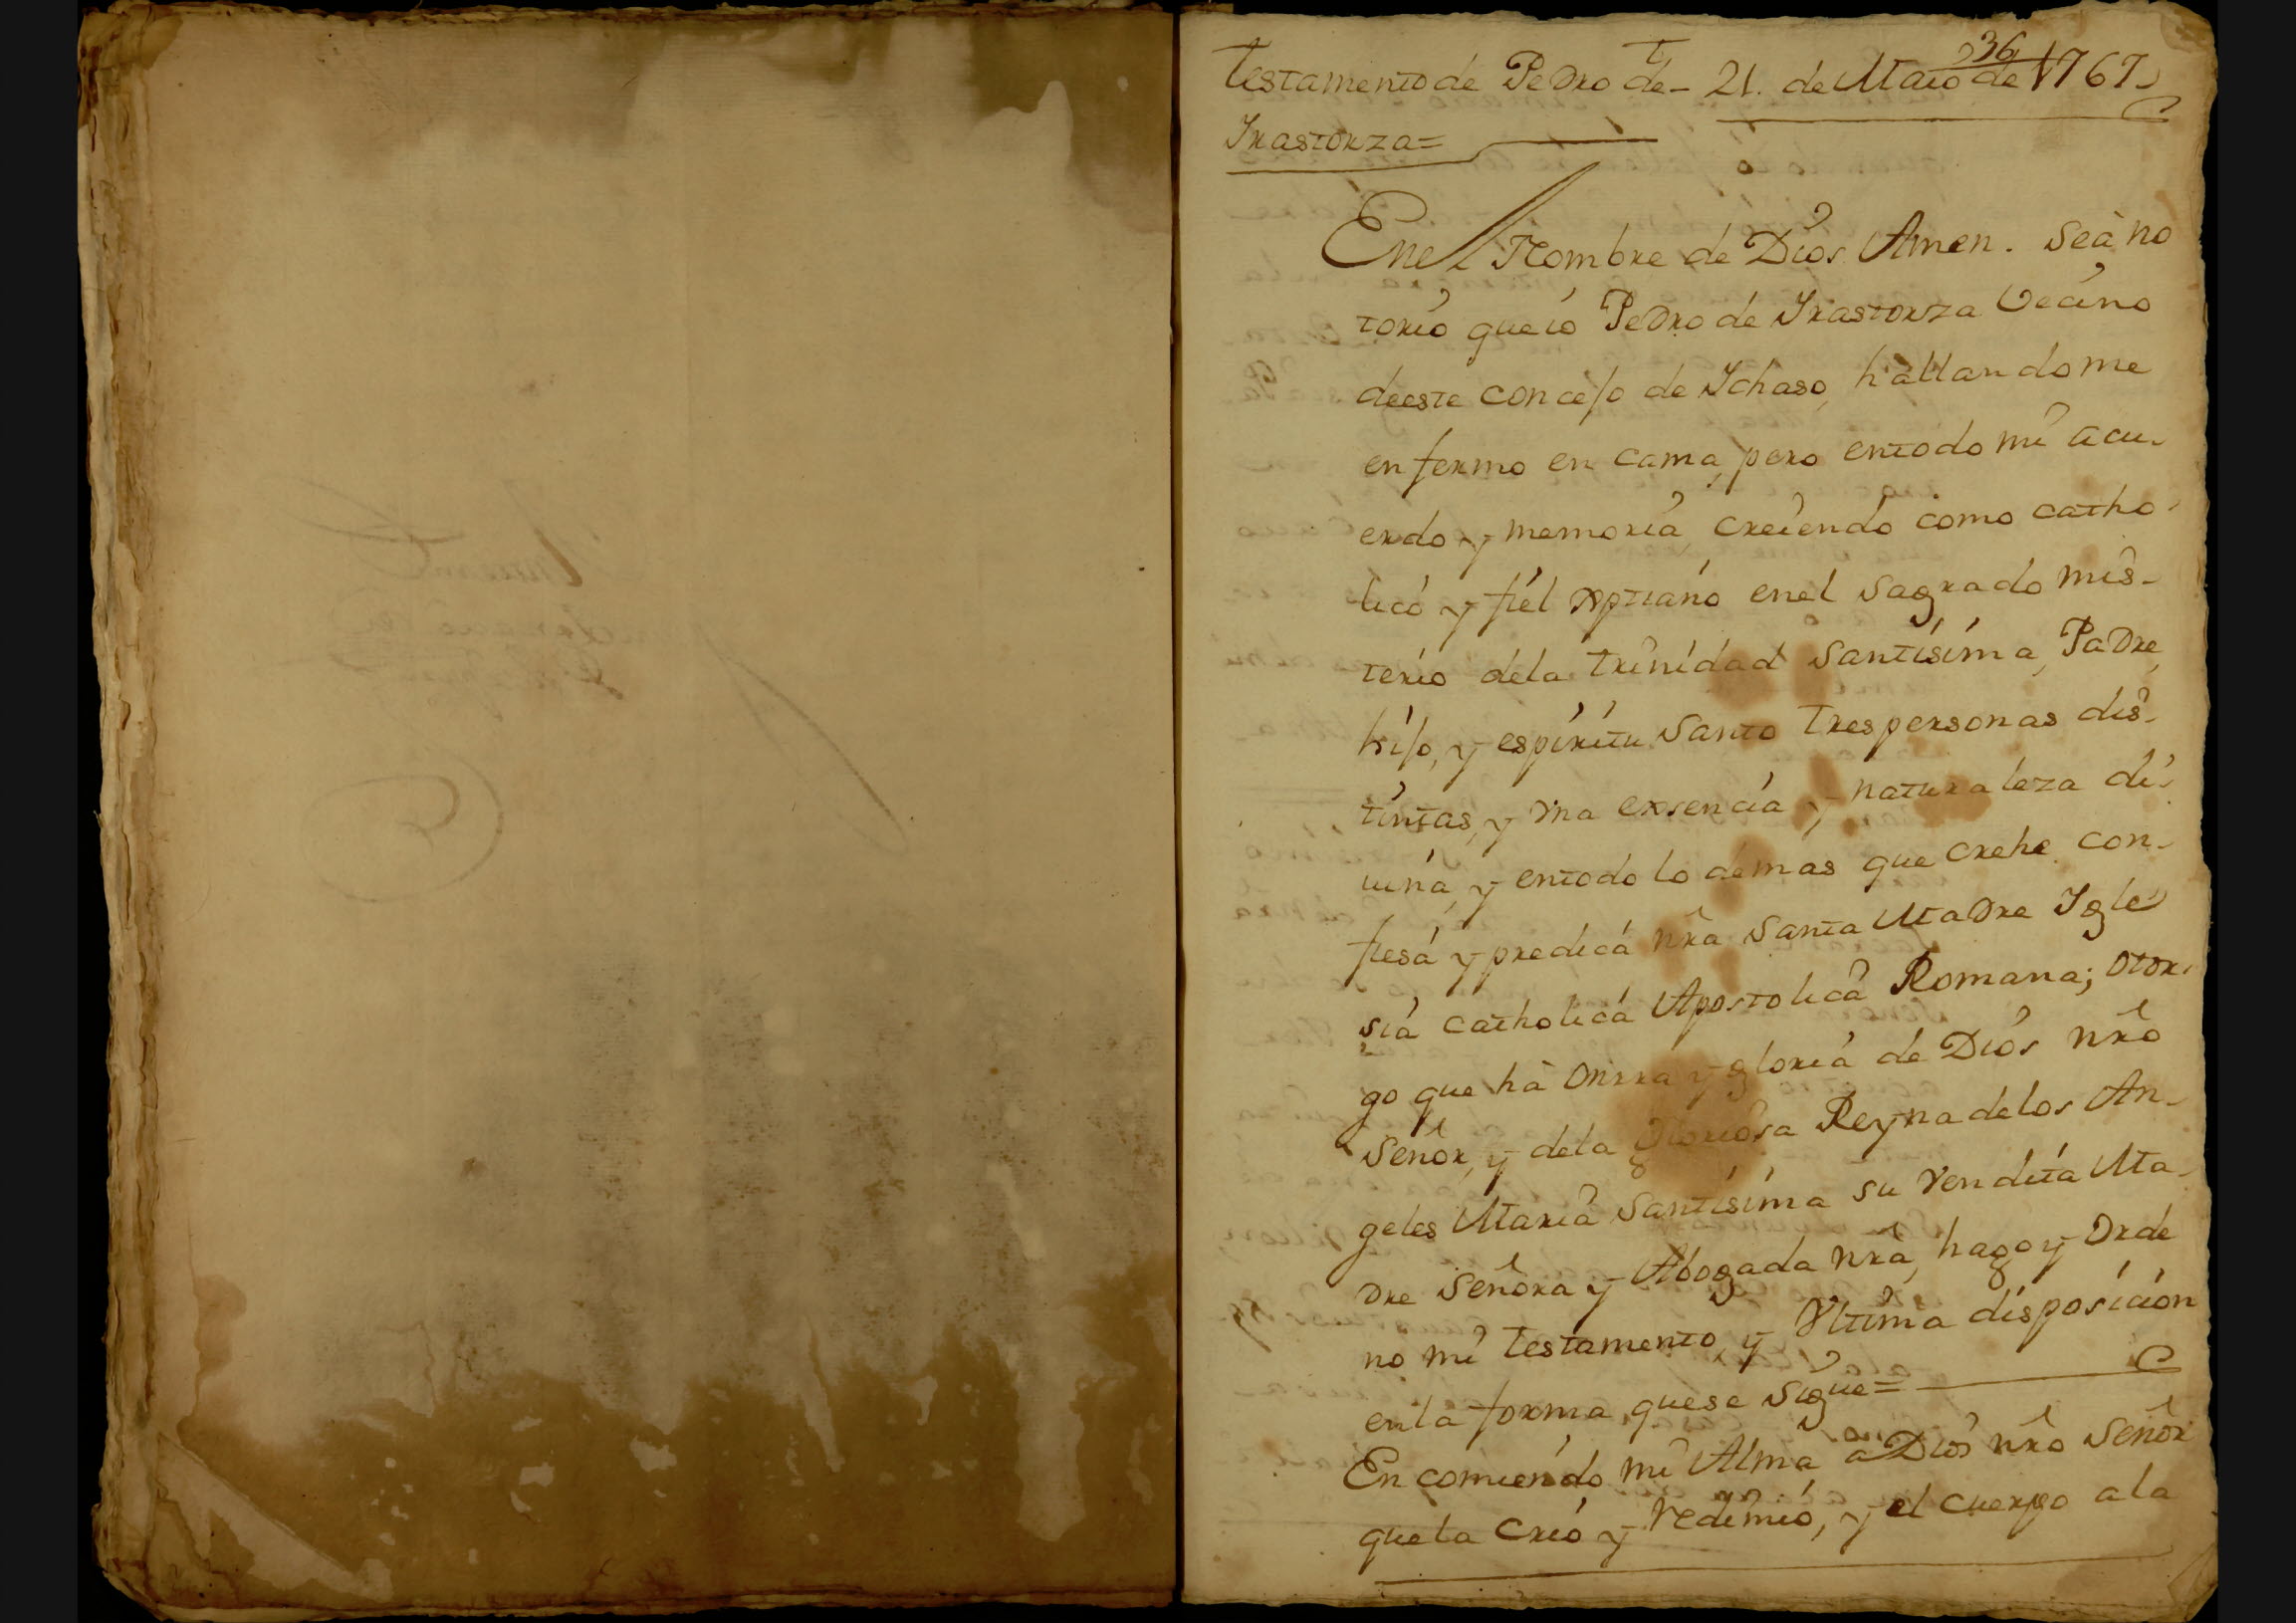 36
Testamento de Pedro de - 21. de Maio de 1767
Irastorza=
En el Nombre de Dios Amen. Sea no
torio que io Pedro de Irastorza vecino
deeste concejo de Ichaso, hallandome
enfermo en cama, pero entodo mi acu-
erdo y memoria creiendo como catho-
lico y fiel xptiano enel sagrado mis-
terio dela trinidad santisima, Padre,
hijo, y espiritu santo tres personas dis-
tintas, y vna exsencia y naturaleza di-
uina, y entodo lo demas que crehe con-
fiesa y predica nrã santa Madre Igle
sia catholica Apostolica Romana; otor-
go que hà onrra y gloria de Dios nrõ
Señor, y dela gloriosa Reyna delos An-
geles Maria santisima su vendita Ma-
dre Señora y Abogada nrã, hago y orde
no mi testamento, y vltima disposicion
enla forma, quese sigue=
Encomiendo mi Alma a Dios nrõ Señor
quela crió y redimió, y el cuerpo ala